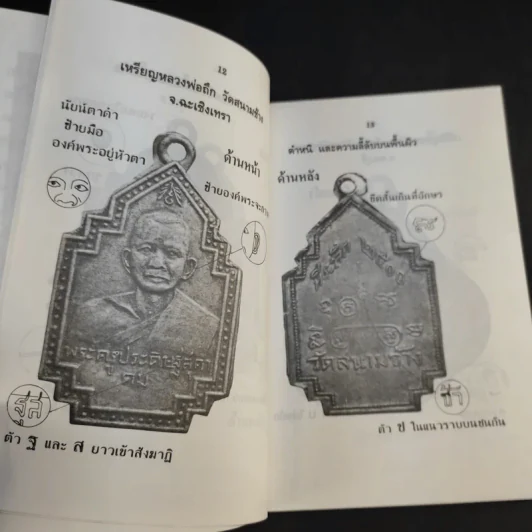 12
เหรียญหลวงพ่อถึก วัดสนามช้าง
จ.ฉะเชิงเทรา
นัยน์ตาดำ
ซ้ายมือ
องค์พระอยู่หัวตา
ด้านหน้า
ซ้ายองค์พระจะ
พระครูประดิษฐ์สิลา
คม
ฐส
ตัว ฐ และ ส ยาวเข้าสังฆาฏิ
13
ตำหนิ และความลี้ลับบนพื้นผิว
ด้านหลัง
ขีดสั้นเกินที่อักษร
วัดสนามช้าง
ช้า
ตัว ช ในแนวราบบนชนกัน